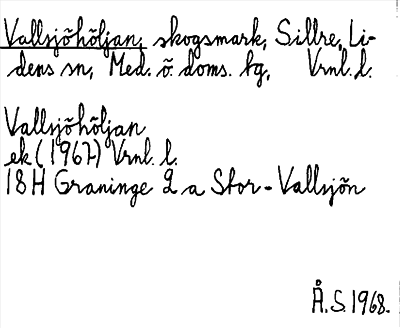 Vallsjöhöljan, skogsmark, Sillre, Li-
dens sn, Med. ö. doms. tg, Vrnl. l.
Vallsjöhöljan
ek (1967) Vrnl. l.
18H Graninge 2 a Stor-Vallsjön
Å.S. 1968.